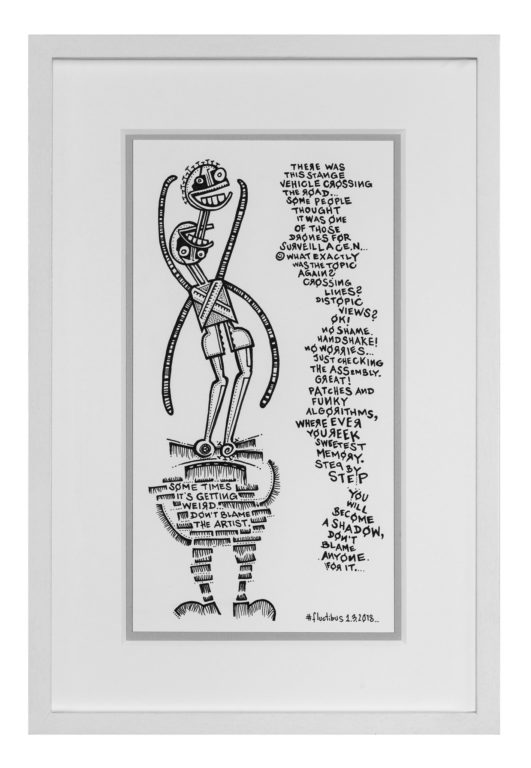 THERE WAS
THIS STANGE
VEHICLE CROSSING
THE ROAD...
SOME PEOPLE
THOUGHT
IT WAS ONE
OF THOSE
DRONES FOR
SURVEILLACE.N...
WHAT EXACTLY
WAS THE TOPIC
AGAIN?
CROSSING
LINES?
DISTOPIC
VIEWS?
OK!
NO SHAME.
HANDSHAKE!
NO WORRIES...
JUST CHECKING
THE ASSEMBLY.
GREAT!
PATCHES AND
FUNKY
ALGORITHMS,
WHERE EVER
YOU SEEK
SWEETEST
MEMORY.
STEP BY
STEP
YOU
WILL
BECOME
A SHADOW,
DON'T
BLAME
ANYONE.
FOR IT....
SOME TIMES
IT'S GETTING
WEIRD...
DON'T BLAME
THE ARTIST.
#fluctibus 1.3.2018...